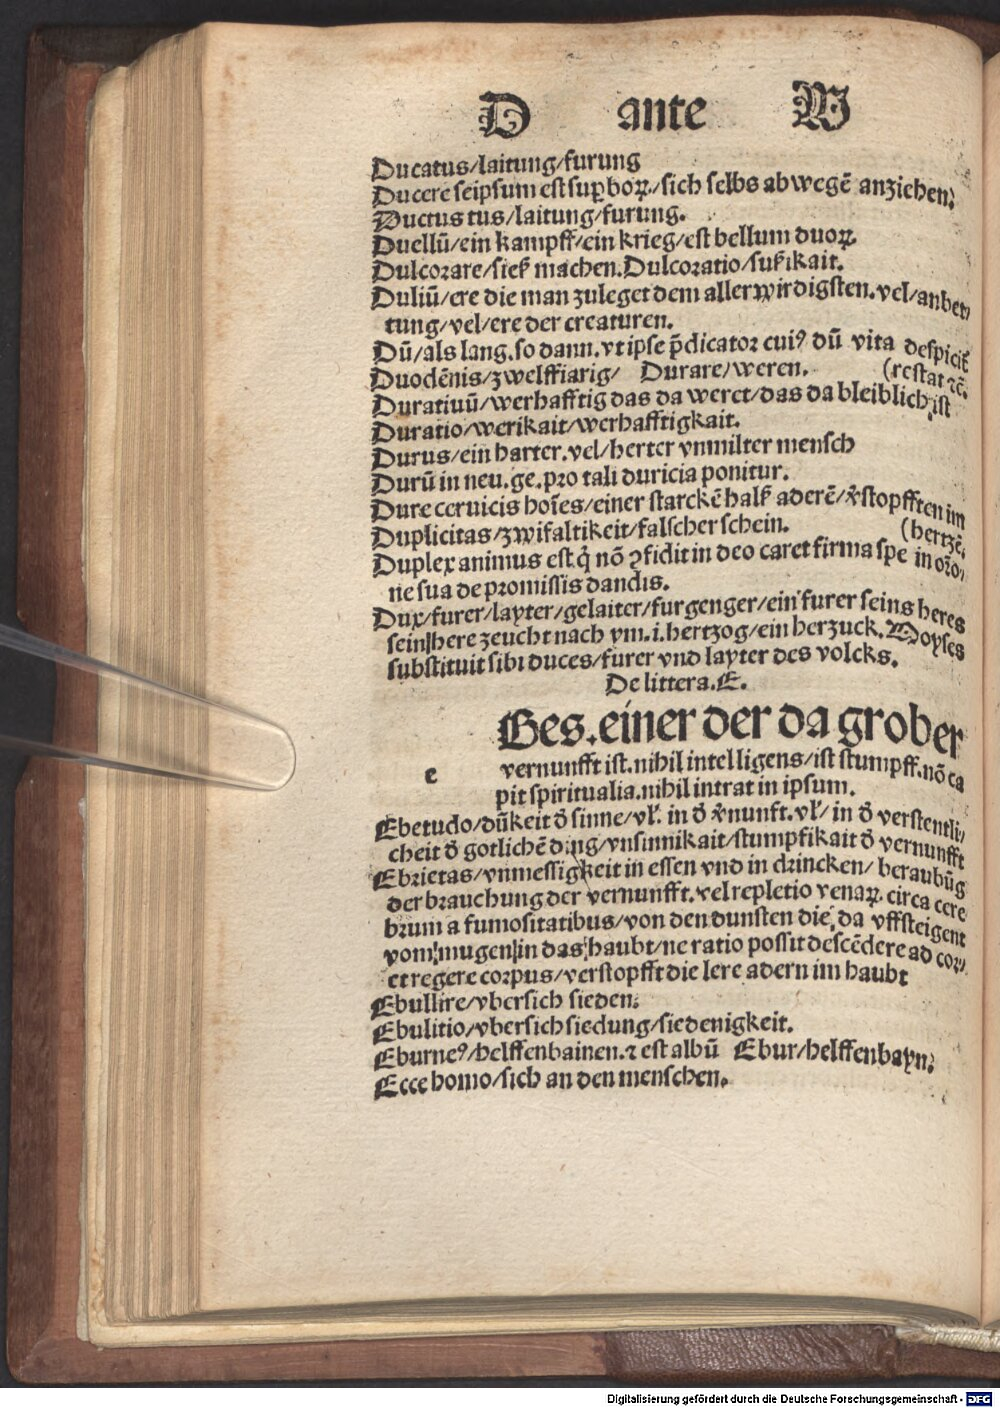 D ante W
Ducatus/laitung/furung
Ducere seipsum est sup̱ boꝝ./sich selbs abwegē anziehen.
Ductus tus/laitung/furung.
Duellū/ein kampff/ein krieg/est bellum duoꝝ.
Dulcorare/sieß machen. Dulcoratio/sußikait.
Duliū/ere die man zuleget dem allerwirdigsten. vel/anbet/
tung/vel/ere der creaturen.
Dū/als lang. so dann. vt ipse p̄dicator cuiꝰ dū vita despicit̄
Duodēnis/zwelffiarig/ Durare/weren. (restat ꝛc̄.
Duratiuū/werhafftig das da weret/das da bleiblich ist
Duratio/werikait/werhafftigkait.
Durus/ein harter. vel/herter vnmilter mensch
Durū in neu. ge. pro tali duricia ponitur.
Dure ceruicis hoīes/einer starckē halß aderē/v̄stopfften im
Duplicitas/zwifaltikeit/falscher schein. (hertzē.
Duplex animus est q̇ nō ꝯfidit in deo caret firma spe in orō/
ne sua de promissis dandis.
Dux/furer/layter/gelaiter/furgenger/ein furer seins heres
sein here zeucht nach ym. i. hertzog/ein herzuck. Moyses
substituit sibi duces/furer vnd layter des volcks.
De littera. E.
e
Bes. einer der da grober
vernunfft ist. nihil intelligens/ist stumpff. nō ca
pit spiritualia. nihil intrat in ipsum.
Ebetudo/dūkeit d̄ sinne/vl̓. in d̄ v̄nunft. vl̓/in d̄ verstentli/
cheit d̄ gotlichē ding/vnsinnikait/stumpfikait d̄ vernunfft
Ebrietas/vnmessigkeit in essen vnd in drincken/beraubūg
der brauchung der vernunfft. vel repletio venaꝝ. circa cere
brum a fumositatibus/von den dunsten die da vffsteigent
vom mugen in das haubt/ne ratio possit descēdere ad cor/
et regere corpus/verstopfft die lere adern im haubt
Ebullire/vbersich sieden.
Ebulitio/vbersich siedung/siedenigkeit.
Eburneꝰ/helffenbainen. ⁊ est albū Ebur/helffenbayn.
Ecce homo/sich an den menschen.
Digitalisierung gefördert durch die Deutsche Forschungsgemeinschaft - DFG